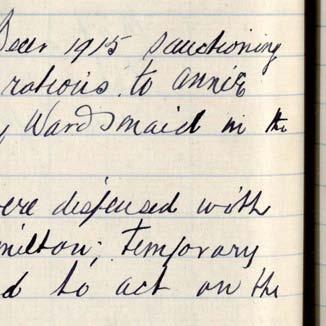 Decr 1915 sanctioning
rations. to Annie
y Wardsmaid in the
ere dispensed with
milton; Temporary
d to act on the